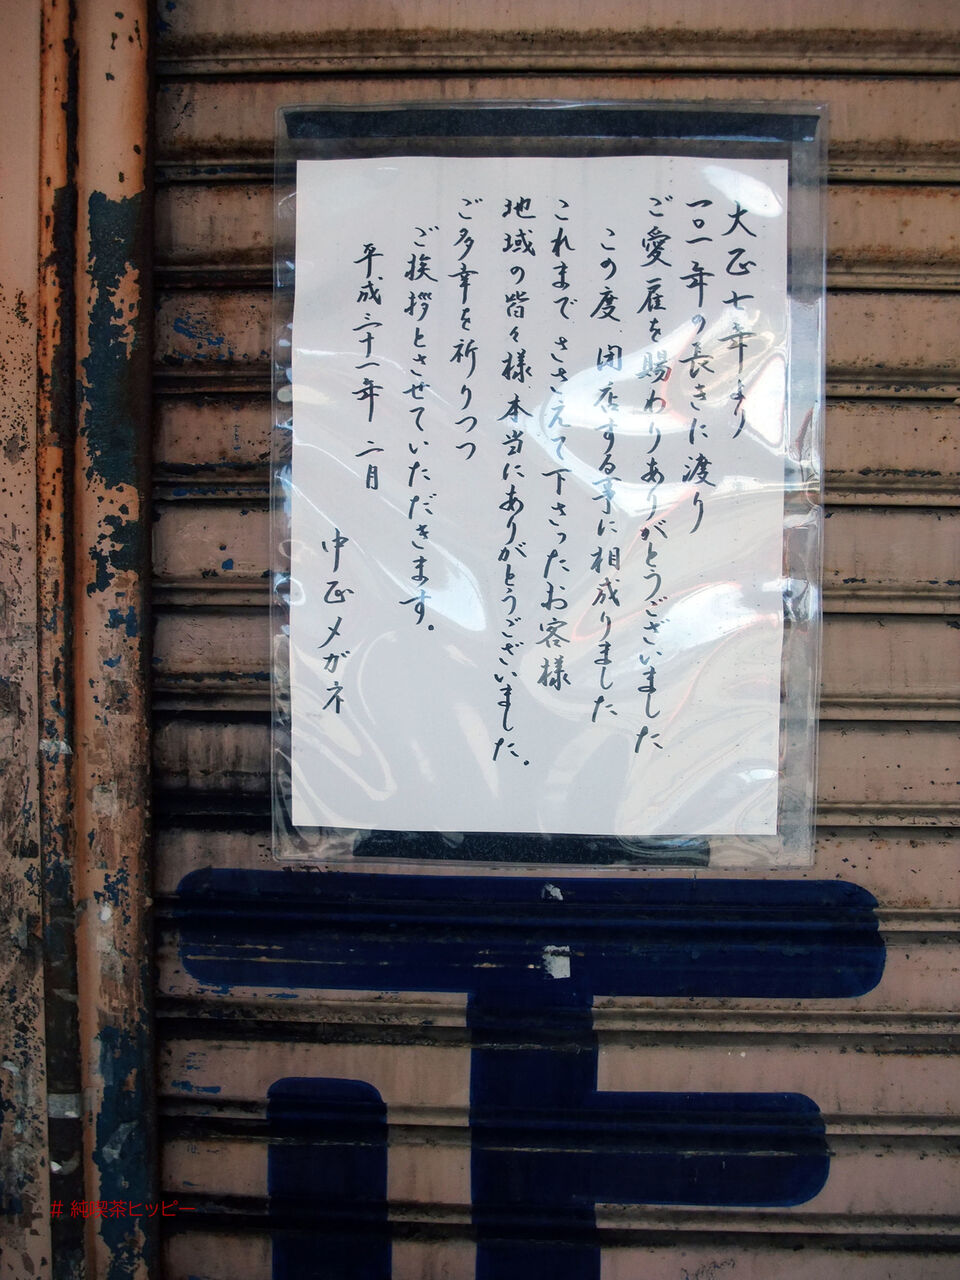 大正七年より
一〇一年の長きに渡り
ご愛雇を賜わりありがとうございました
この度 閉店する事に相成りました
これまで ささえて下さったお客様
地域の皆々様 本当にありがとうございました。
ご多幸を祈りつつ
ご挨拶とさせていただきます。
平成三十一年 二月
中正メガネ
正
# 純喫茶ヒッピー